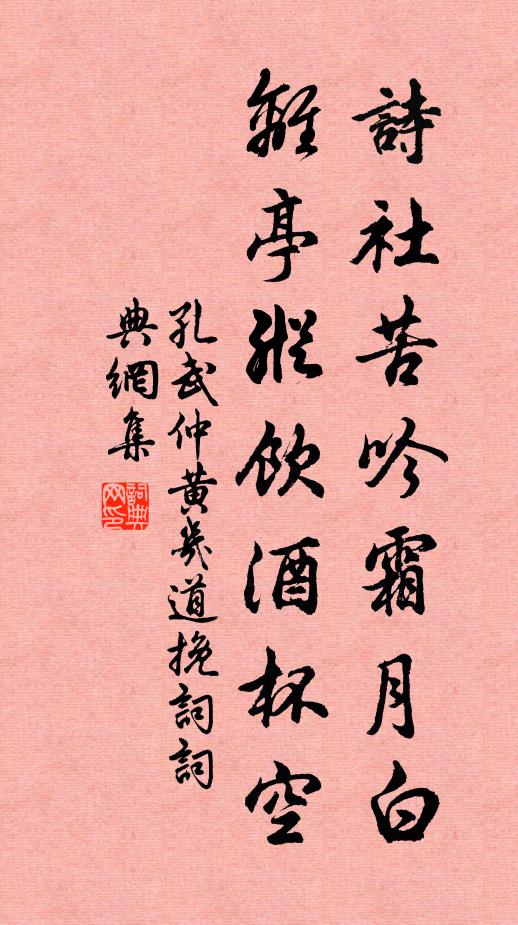 詩社苦吟霜月白
離亭縱飲酒杯空
孔武仲黄幾道挽詞詞
典網集
詞典
网印